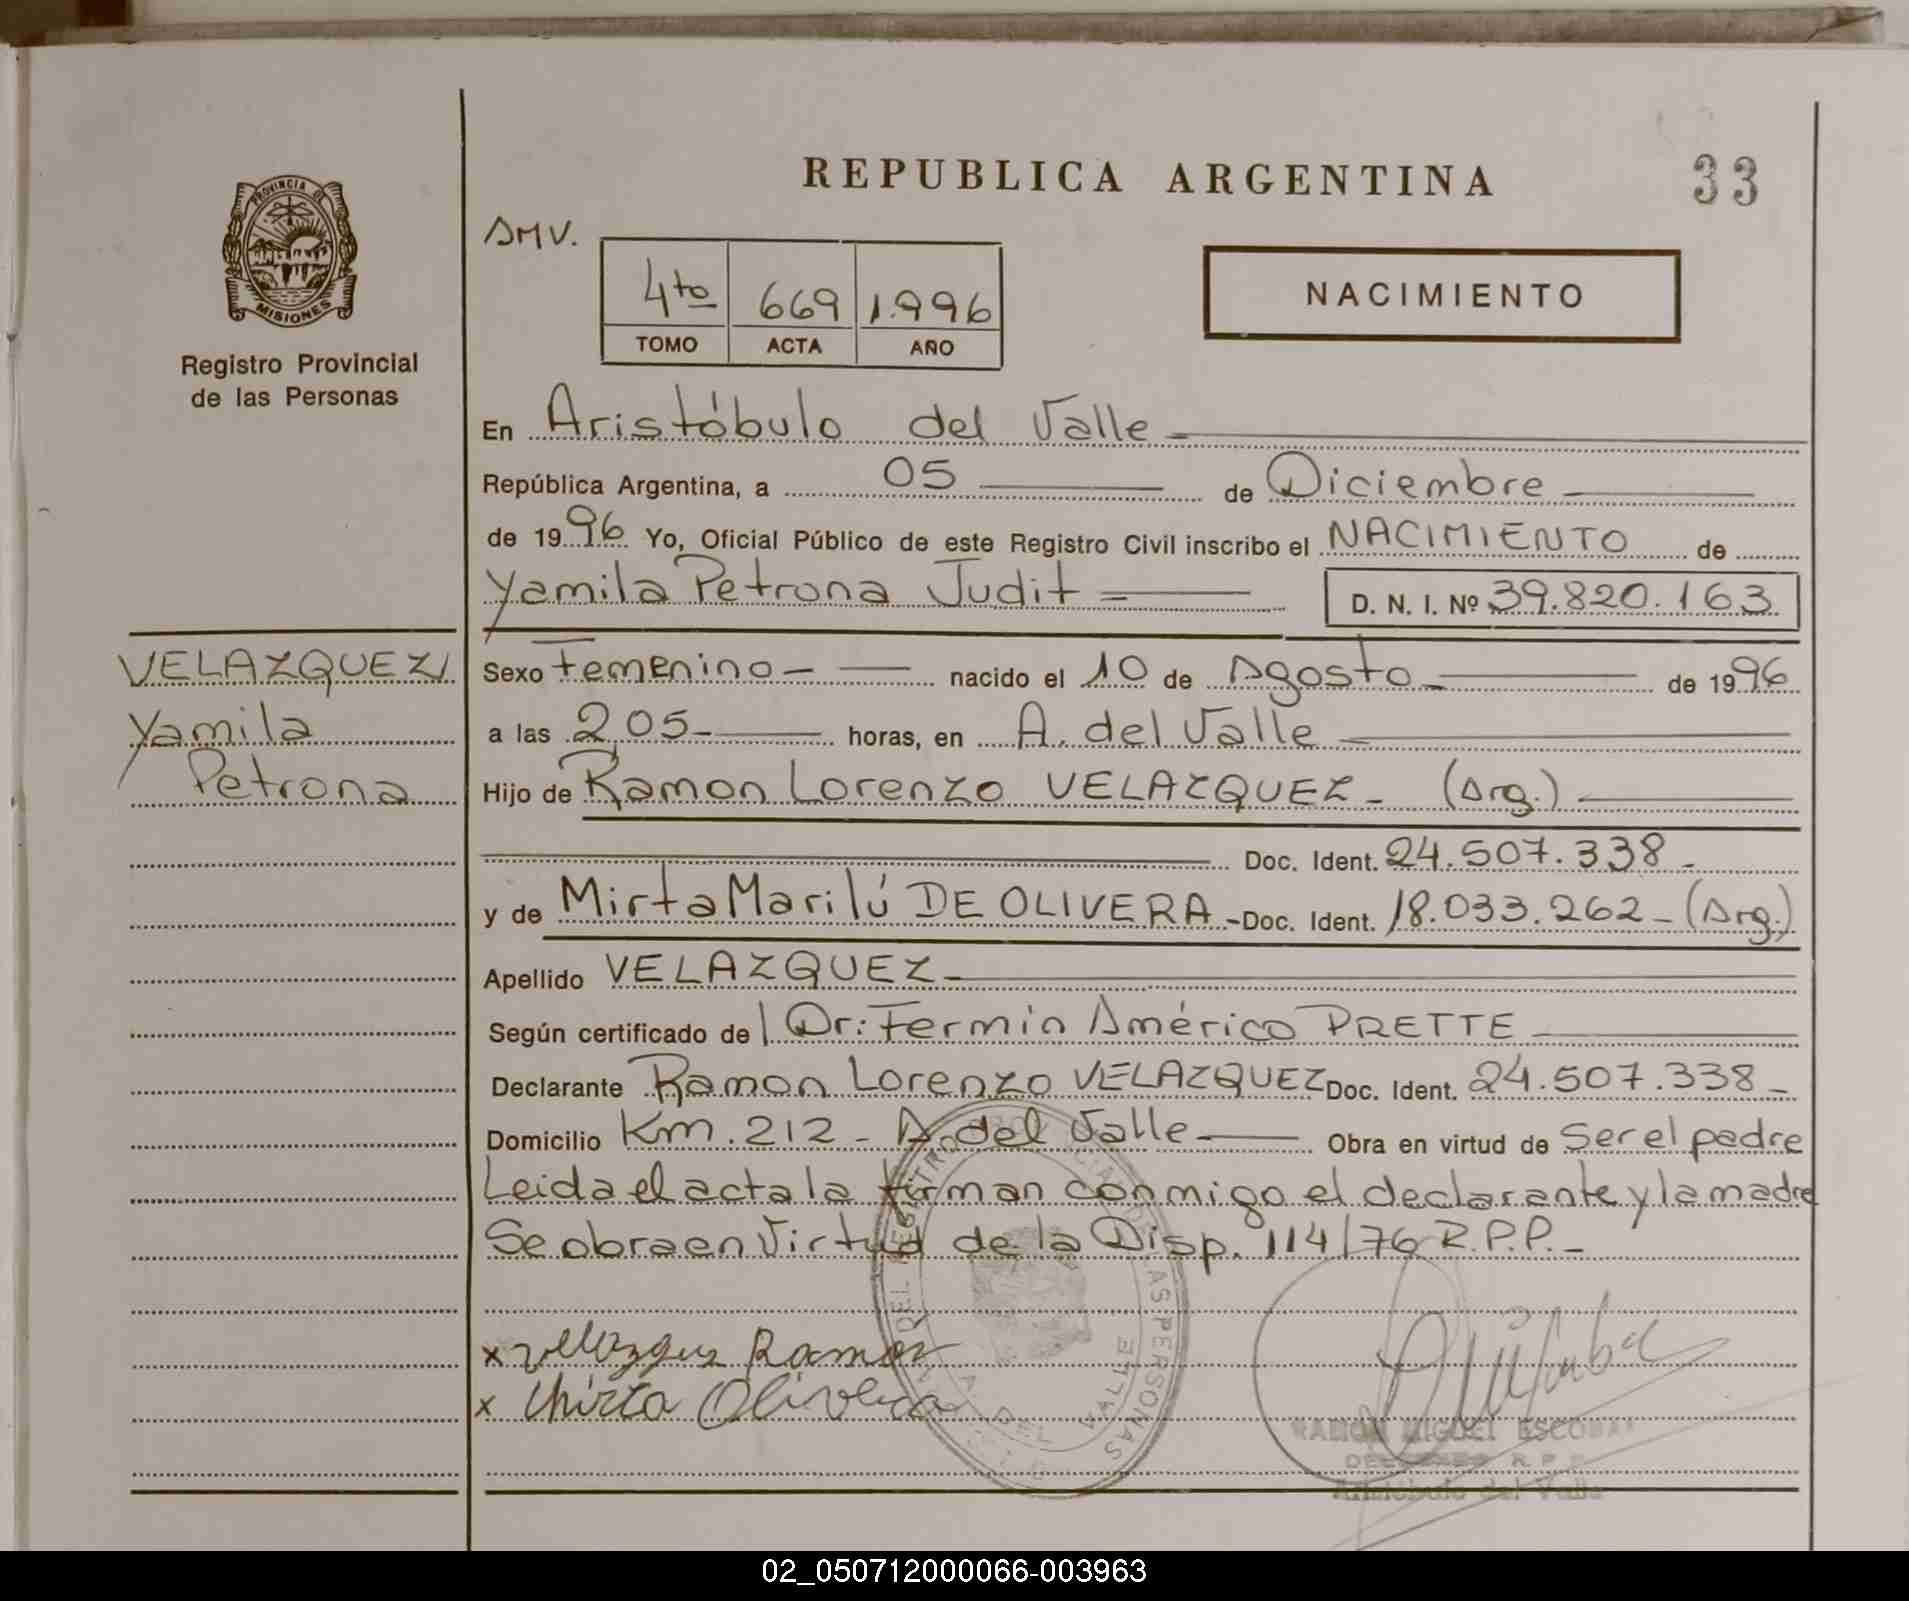 REPUBLICA ARGENTINA
33
PROVINCIA DE
MISIONES
Registro Provincial
de las Personas
AMV.
4to 669 1.996
TOMO ACTA AÑO
NACIMIENTO
En Aristóbulo del Valle
República Argentina, a 05 de Diciembre
de 1996 Yo, Oficial Público de este Registro Civil inscribo el NACIMIENTO de
Yamila Petrona Judit D. N. I. Nº 39.820.163
VELAZQUEZ
Yamila
Petrona
Sexo Femenino nacido el 10 de Agosto de 1996
a las 2,05 horas, en A. del Valle
Hijo de Ramon Lorenzo VELAZQUEZ (Arg.)
Doc. Ident. 24.507.338
y de Mirta Marilú DE OLIVERA Doc. Ident. 18.033.262 (Arg.)
Apellido VELAZQUEZ
Según certificado de Dr: Fermín Américo PRETTE
Declarante Ramon Lorenzo VELAZQUEZ Doc. Ident. 24.507.338
Domicilio Km. 212 - A. del Valle Obra en virtud de Ser el padre
Leida el acta la firman conmigo el declarante y la madre
Se obra en virtud de la Disp. 114/76 R.P.P.
x Velazquez Ramon
x Mirta Olivera
DEL REGISTRO PROVINCIAL DE LAS PERSONAS
A. DEL VALLE
RAMON MIGUEL ESCOBAR
R P P
Aristóbulo del Valle
02_050712000066-003963